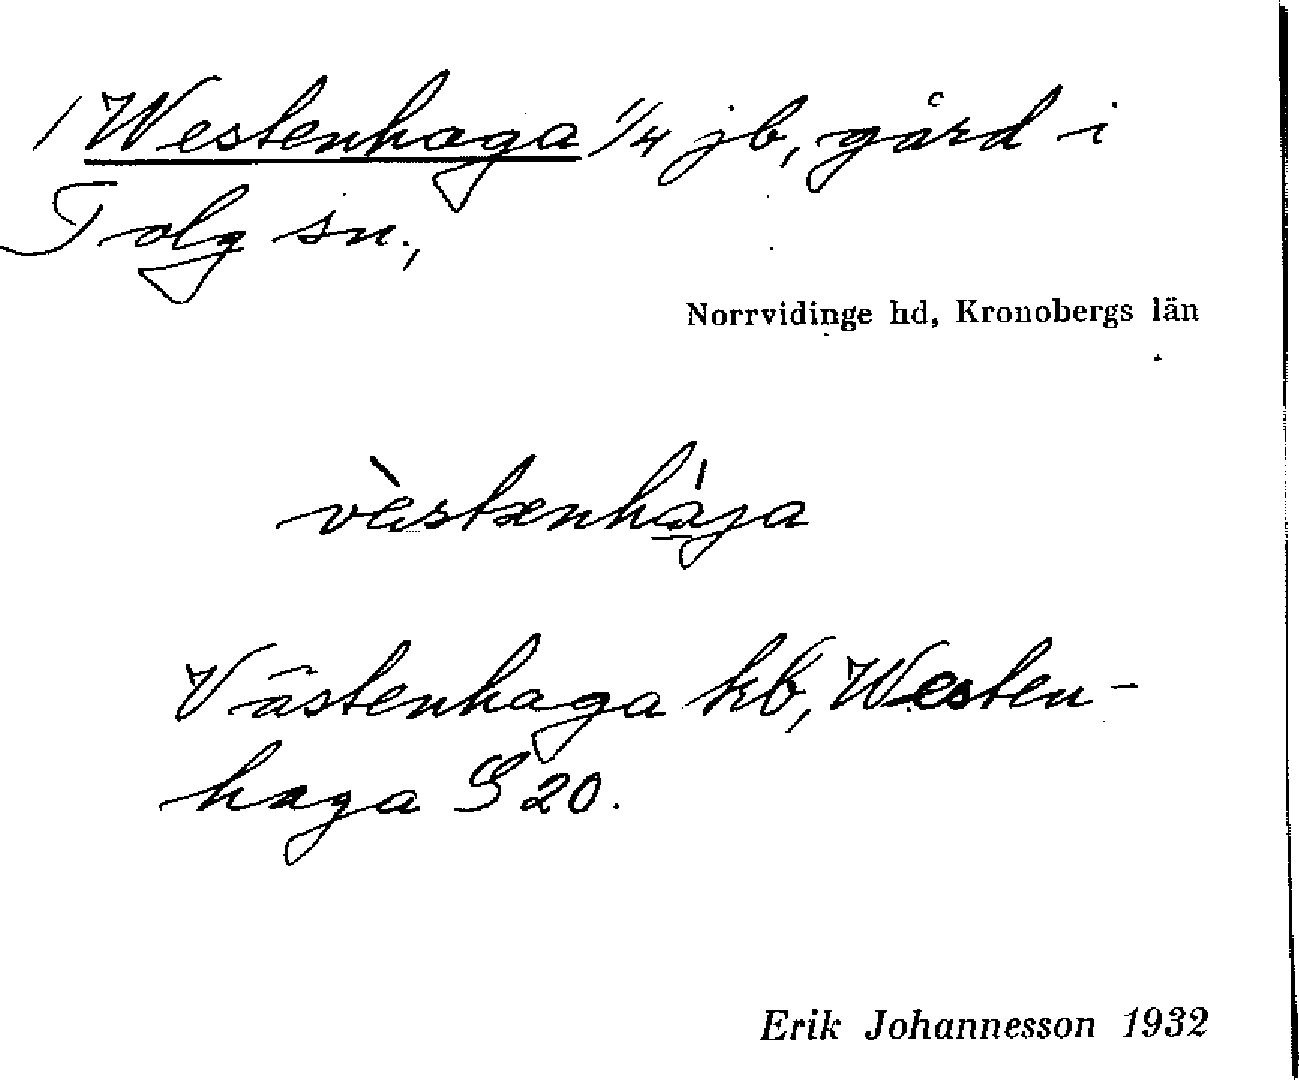 / Westenhaga 1/4 jb, gård i
Tolg sn.,
Norrvidinge hd, Kronobergs län
vàstænhája
Västenhaga kb, Westen-
haga S 20.
Erik Johannesson 1932